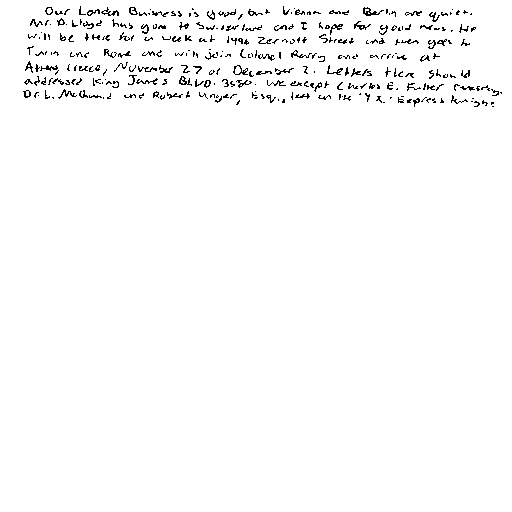 Our London Buisness is good, but Vienna and Berlin are quiet.
Mr. D. Lloyd has gone to Switzerland and I hope for good news. He
will be there for a week at 1496 Zermott Street and then goes to
Turin and Rome and will join Colonel Parry and arrive at
Athens, Greece, November 27 or December 2. Letters there should
addressed King James BLVD. 3580. We except Charles E. Fuller Tuesday.
Dr. L. McQuaid and Robert Unger, Esq., left on the "Y.X." Express tonight.